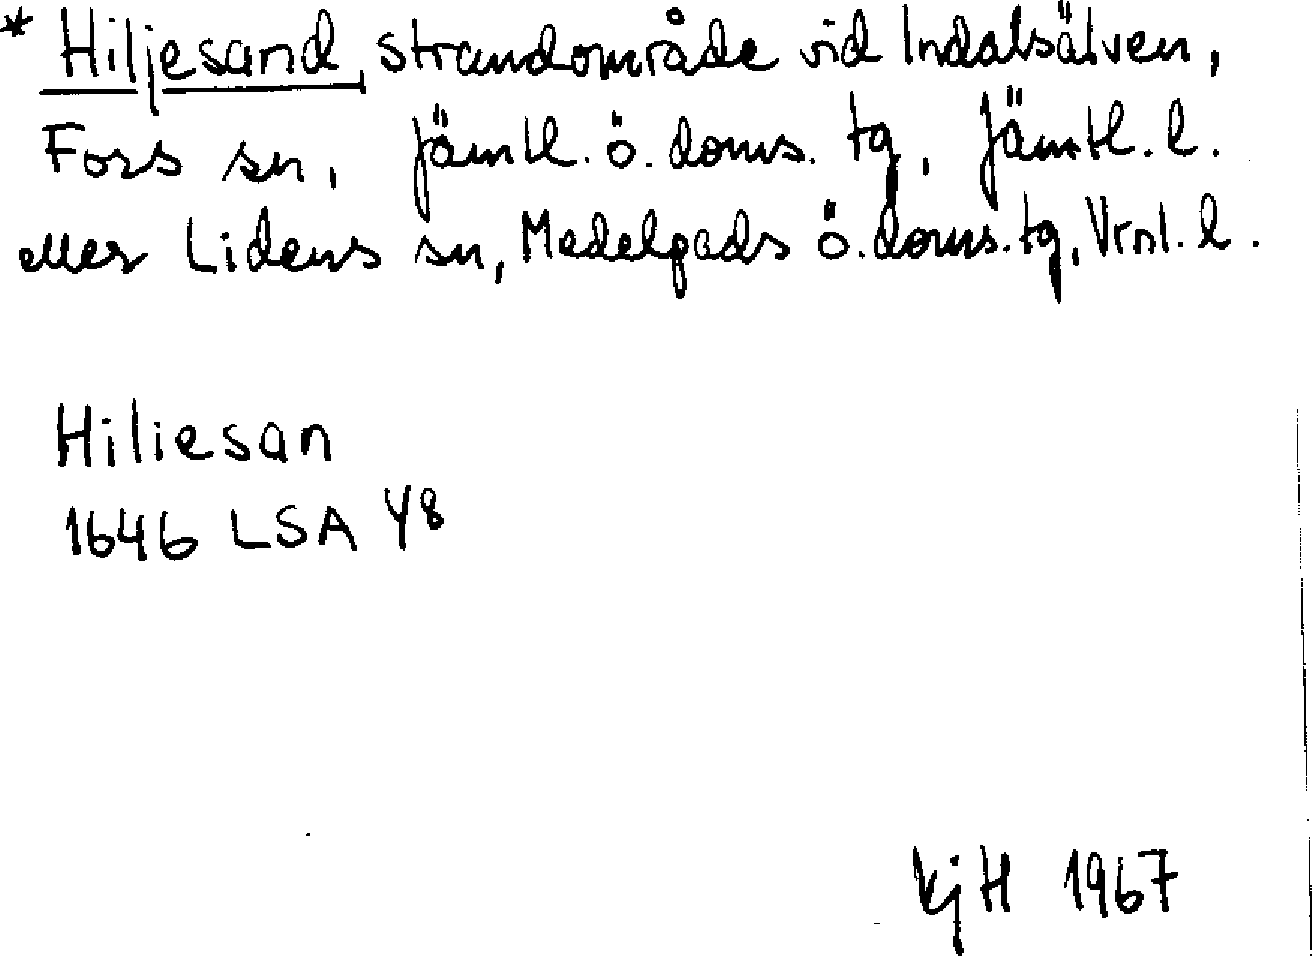 * Hiljesand, strandområde vid Indalsälven,
Fors sn, Jämtl. ö. doms. tg, Jämtl. l.
eller Lidens sn, Medelpads ö. doms. tg, Vrnl. l.
Hiliesan
1646 LSA Y8
KjH 1967